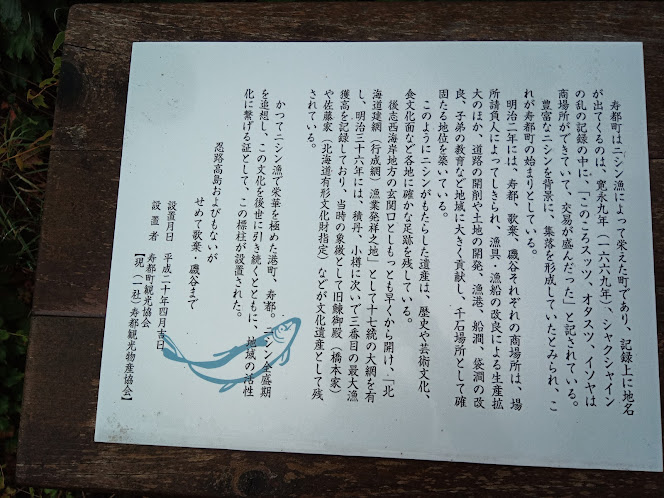 寿都町はニシン漁によって栄えた町であり、記録上に地名
が出てくるのは、寛永九年（一六六九年）、シャクシャイン
の乱の記録の中に、「このころスッツ、オタスツ、イソヤは
商場所ができていて、交易が盛んだった」と記されている。
豊富なニシンを背景に、集落を形成していたとみられ、こ
れが寿都町の始まりとしている。
明治二年には、寿都、歌棄、磯谷それぞれの商場所は、場
所請負人によってしきられ、漁具、漁船の改良による生産拡
大のほか、道路の開削や土地の開発、漁港、船澗、袋澗の改
良、子弟の教育など地域に大きく貢献し、千石場所として確
固たる地位を築いている。
このようにニシンがもたらした遺産は、歴史や芸術文化、
食文化面など各地に確かな足跡を残している。
後志西海岸地方の玄関口としもっとも早くから開け、「北
海道建網（行成網）漁業発祥之地」として十七統の大網を有
し、明治三十六年には、積丹、小樽に次いで三番目の最大漁
獲高を記録しており、当時の象徴として旧鰊御殿（橋本家）
や佐藤家（北海道有形文化財指定）などが文化遺産として残
されている。
かつてニシン漁で栄華を極めた港町、寿都。ニシン全盛期
を追想し、この文化を後世に引き続くとともに、地域の活性
化に繋げる証として、この標柱が設置された。
忍路高島およびもないが
せめて歌棄・磯谷まで
設置月日　平成二十年四月吉日
設置者　寿都町観光協会
【現（一社）寿都観光物産協会】